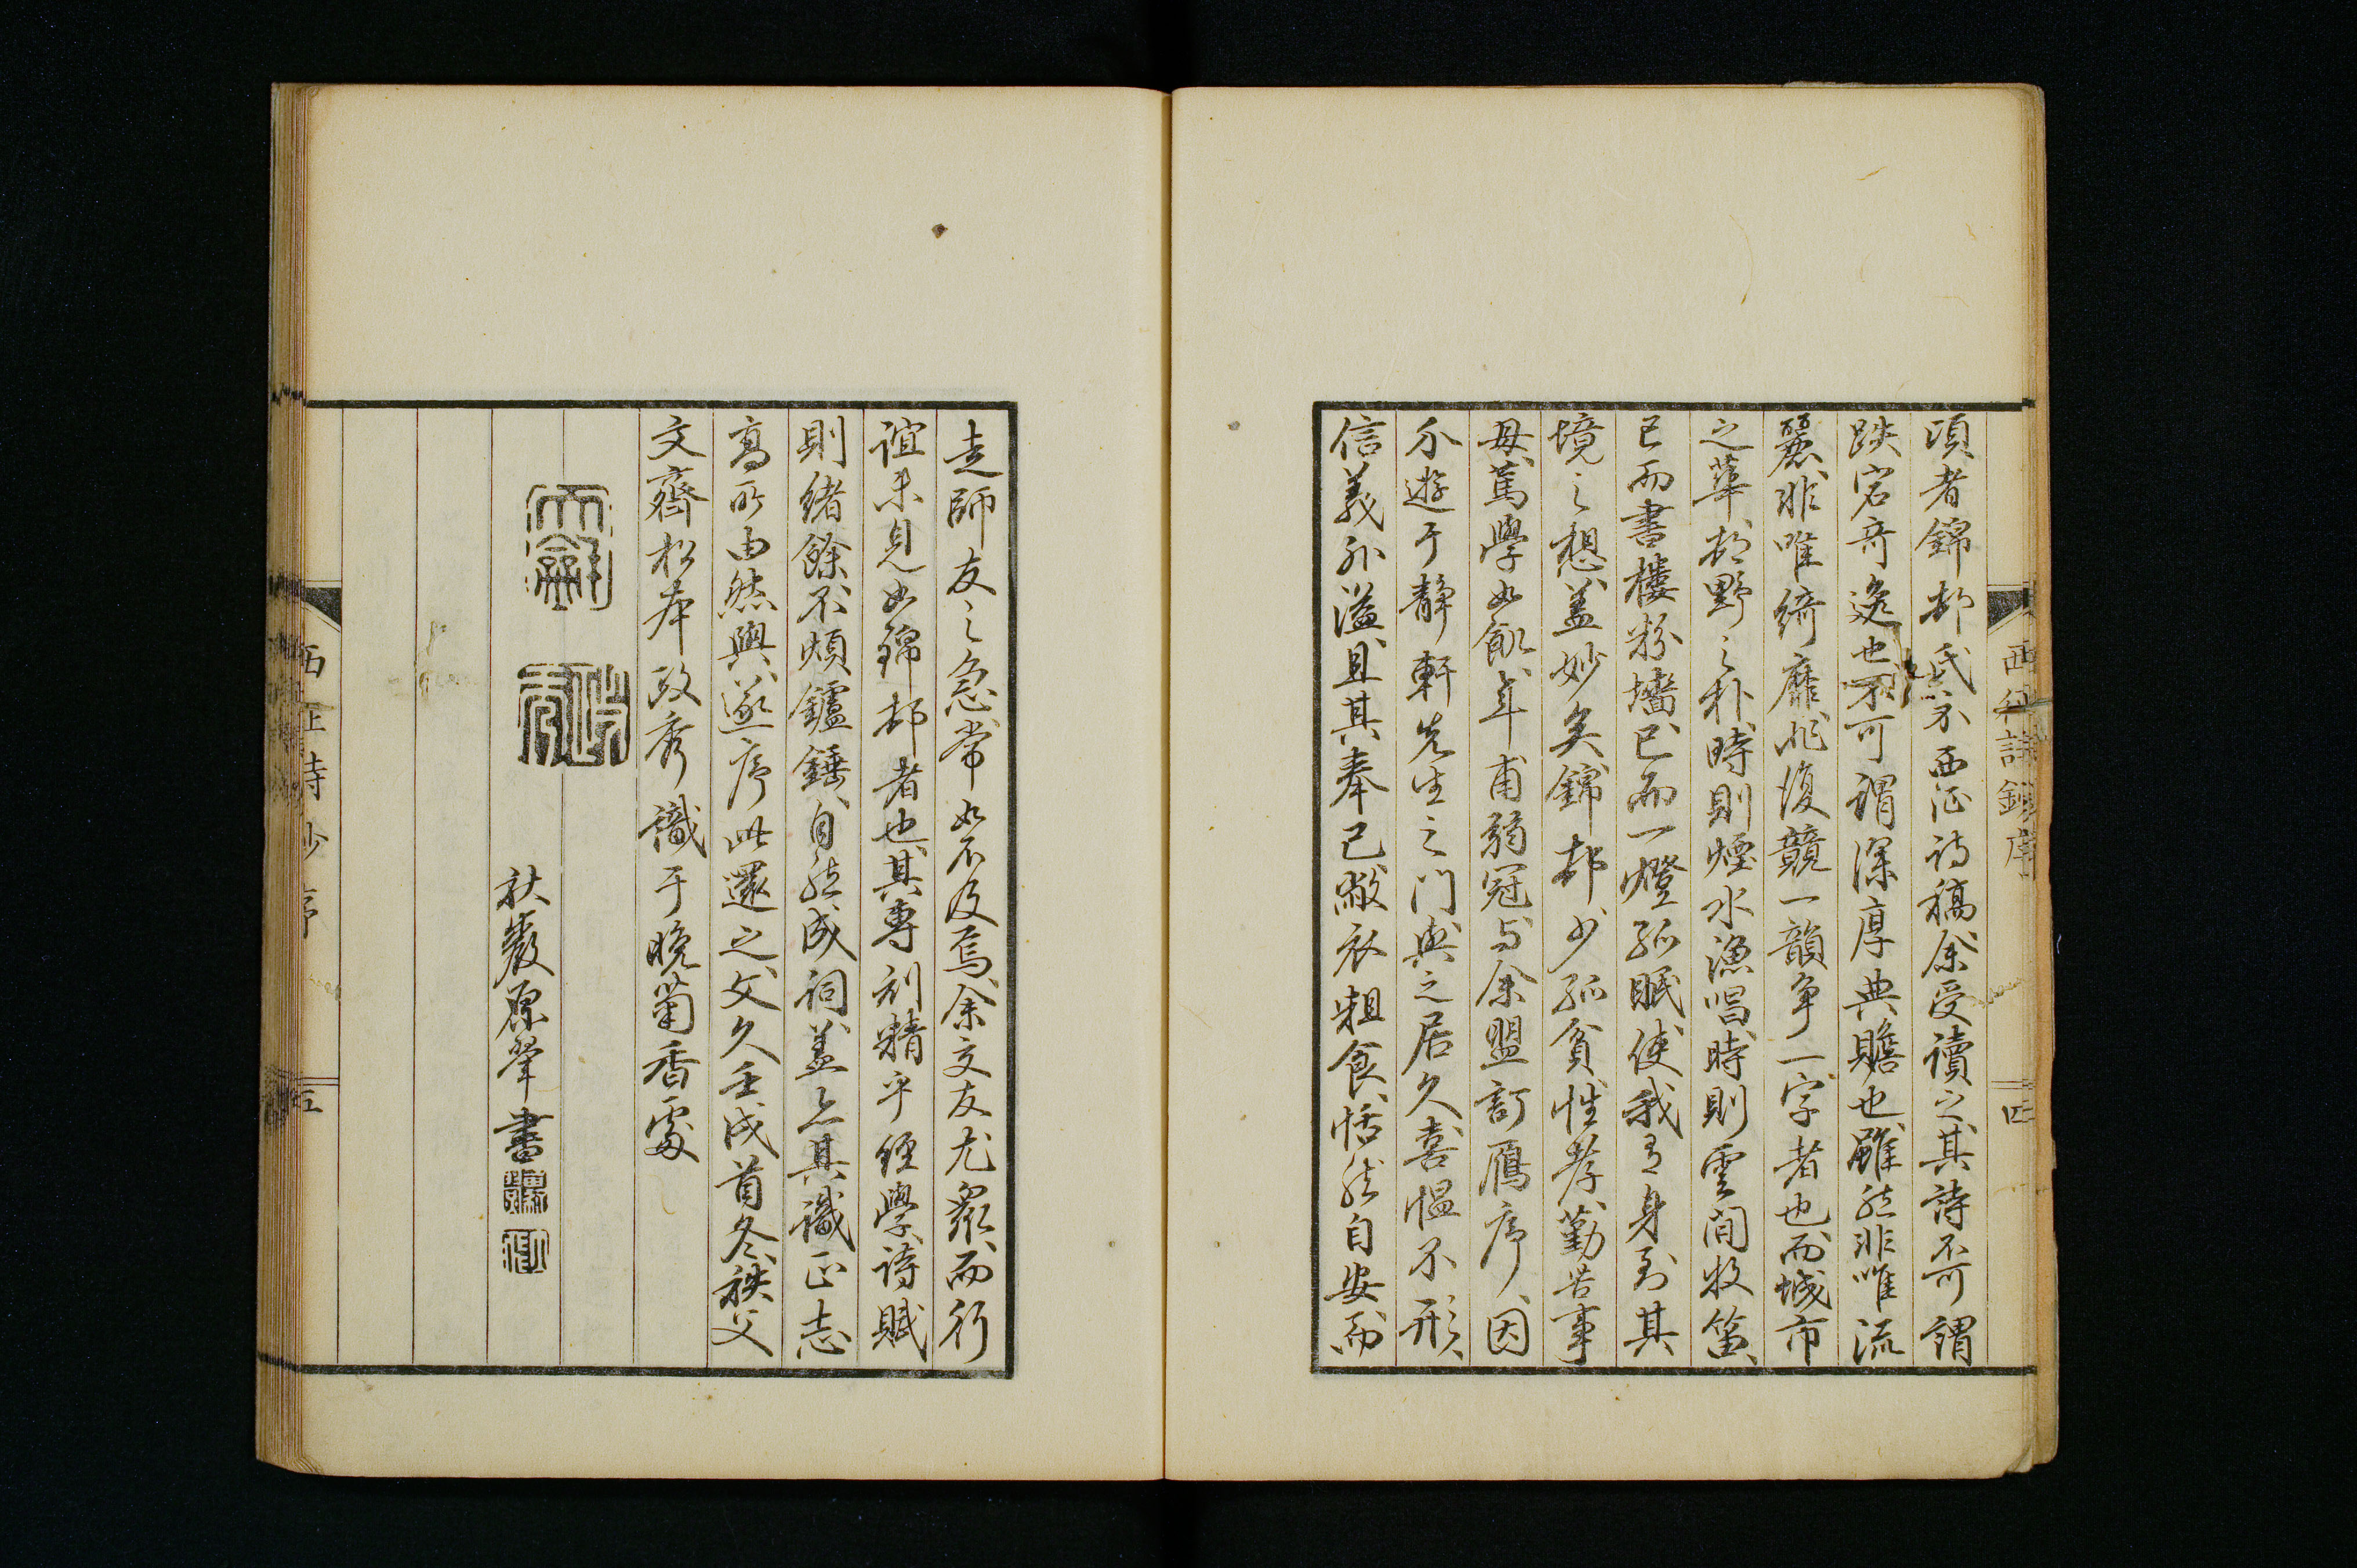 項者錦邨氏示西征詩稿余受讀之其詩不可謂
跌宕奇逸也不可謂深厚典贍也雖然非唯流
麗非唯綺靡非復競一韻爭一字者也而城市
之華邨野之朴時則煙水漁唱時則雲間牧笛
已而書樓粉墻已而一燈孤眠使我有身到其
境之想蓋妙矣錦邨少孤貧性孝勤苦事
母篤學如飢年甫弱冠与余盟訂鴈序因
介遊于靜軒先生之門與之居久喜慍不形
信義外溢且其奉己敝衣粗食恬然自安而
走師友之急常如不及焉余交友尤衆而行
誼未見如錦邨者也其專刻精乎經學詩賦
則緒餘不煩鑪錘自然成詞蓋亦其識正志
高所由然與遂序此還之文久壬戌首冬秩父
文齋松本政秀識于晚菊香處
秋巖原翬書
西征詩鈔序
四
西征詩鈔序
五